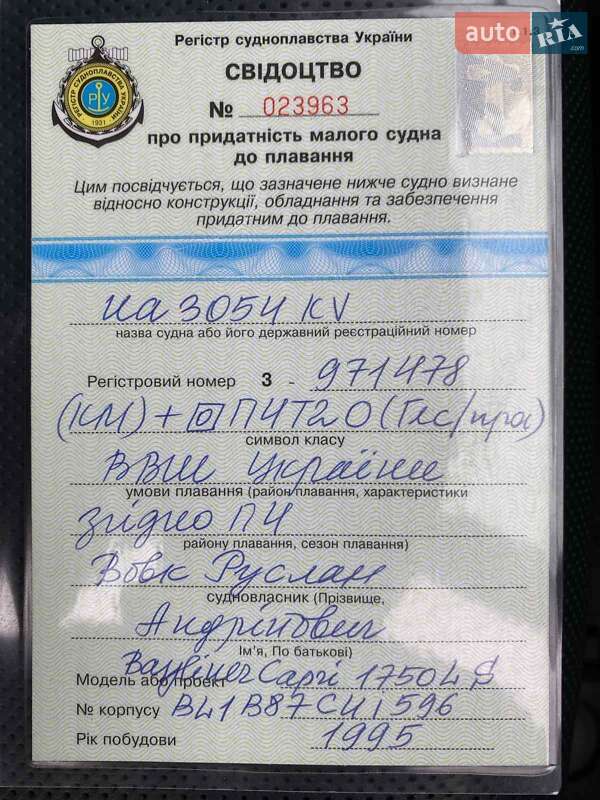 auto RIA .com
Регістр судноплавства України
РЕГІСТР СУДНОПЛАВСТВА УКРАЇНИ
РУ
1931
СВІДОЦТВО
№ 023963
про придатність малого судна
до плавання
Цим посвідчується, що зазначене нижче судно визнане
відносно конструкції, обладнання та забезпечення
придатним до плавання.
иа 3054 KV
назва судна або його державний реєстраційний номер
Регістровий номер 3 - 971478
(КМ) + П4Т20 (Гліс/про)
символ класу
ВВШ України
умови плавання (район плавання, характеристики
згідно П4
району плавання, сезон плавання)
Вовк Руслан
судновласник (Прізвище,
Андрійович
Ім'я, По батькові)
Модель або проект Bayliner Capri 1750 LS
№ корпусу
Рік побудови 1995